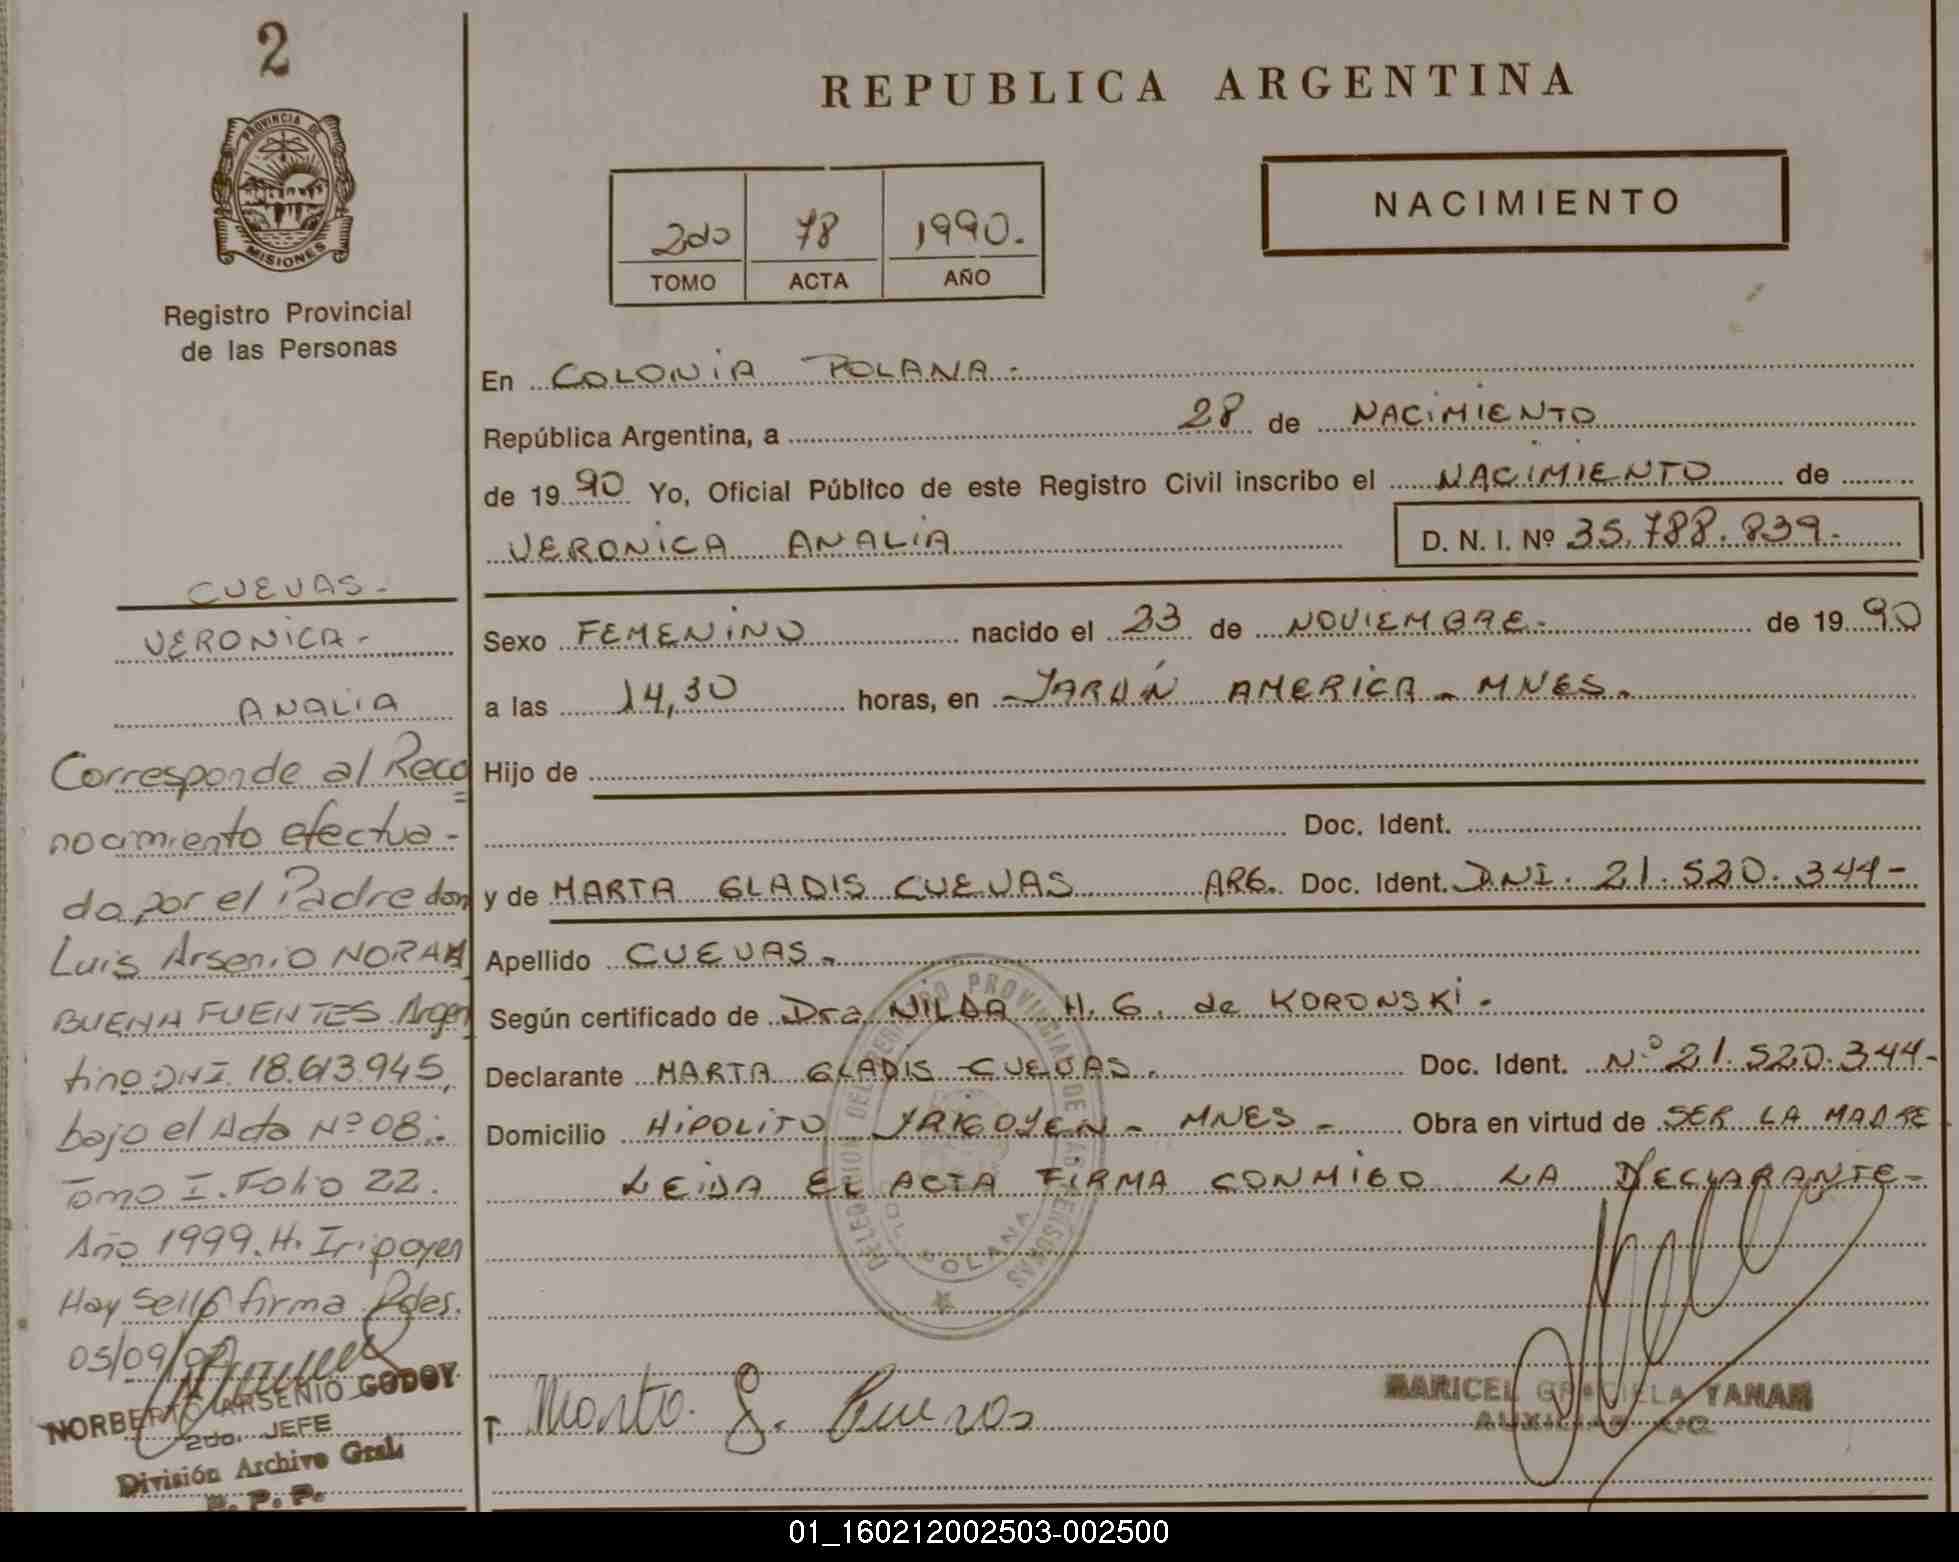 2
PROVINCIA DE
MISIONES
Registro Provincial
de las Personas
REPUBLICA ARGENTINA
NACIMIENTO
2do 78 1990.
TOMO ACTA AÑO
En COLONIA POLANA.
República Argentina, a 28 de NACIMIENTO
de 19 90 Yo, Oficial Público de este Registro Civil inscribo el NACIMIENTO de
VERONICA ANALIA D. N. I. Nº 35.788.839.
CUEVAS.
VERONICA.
ANALIA
Sexo FEMENINO nacido el 23 de NOVIEMBRE. de 19 90
a las 14,30 horas, en JARDÍN AMERICA - MNES.
Hijo de
Doc. Ident.
y de MARTA GLADIS CUEVAS ARG. Doc. Ident. DNI. 21.520.344-
Apellido CUEVAS.
Según certificado de Dra NILDA H. G. de KORONSKI.
Declarante MARTA GLADIS CUEVAS. Doc. Ident. Nº 21.520.344-
Domicilio HIPOLITO YRIGOYEN - MNES - Obra en virtud de SER LA MADRE
LEIDA EL ACTA FIRMA CONMIGO LA DECLARANTE-
Corresponde al Reco=
nocimiento efectua-
do por el Padre don
Luis Arsenio
BUENA FUENTES Argen
tino DNI. 18.613.945,
bajo el Acta Nº 08.
Tomo I. Folio 22.
Año 1999. H. Irigoyen
Hay sello firma. Pdas.
05/09/
NORBERTO ARSENIO GODOY
2do. JEFE
División Archivo Gral.
R. P. P.
POLANA
Marta G. Cuevas
MARICEL GRACIELA YANAM
01_160212002503-002500